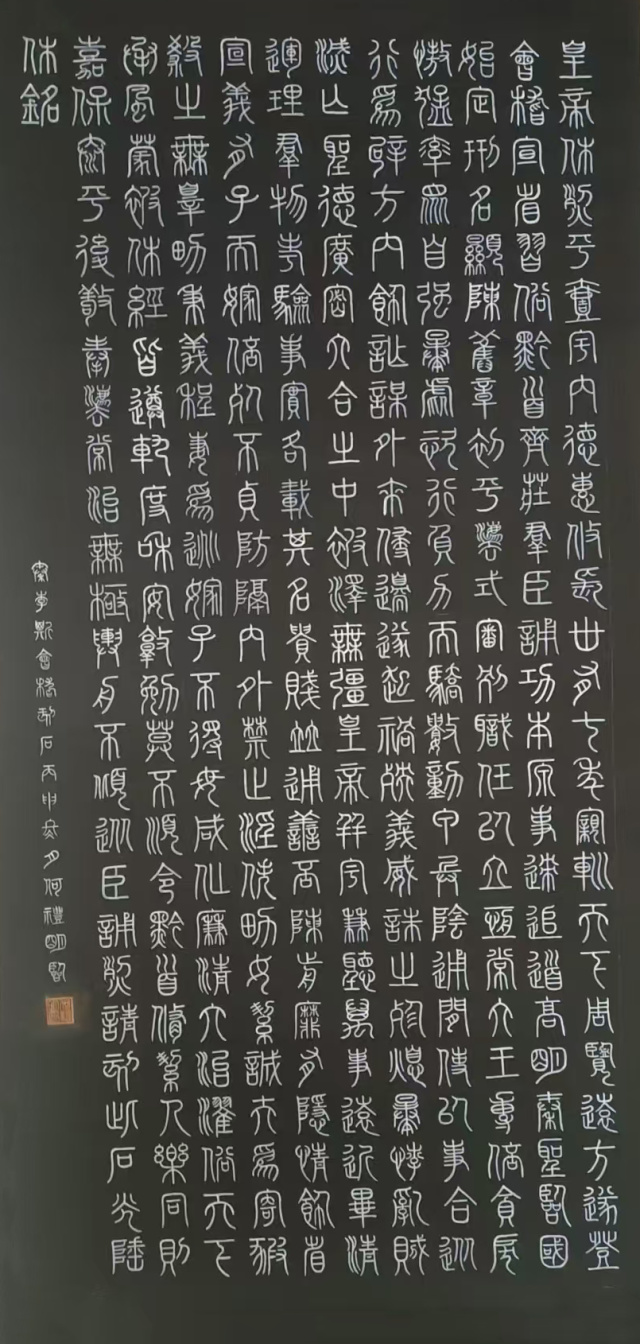 皇帝休烈平壹宇內德惠攸長卅有七年親巡天下周覽遠方遂登
會稽宣省習俗黔首齊莊羣臣誦功本原事迹追道高明秦聖臨國
始定刑名顯陳舊章初平灋式審別職任以立恆常六王專倍貪戾
慠猛率眾自強暴虐恣行負力而驕數動甲兵陰通閒使以事合從
行為辟方內飾詐謀外來侵邊遂起禍殃義威誅之殄熄暴悖亂賊
滅亡聖德廣密六合之中被澤無疆皇帝并宇兼聽萬事遠近畢清
運理羣物考驗事實各載其名貴賤並通善否陳前靡有隱情飾省
宣義有子而嫁倍死不貞防隔內外禁止淫佚男女絜誠夫為寄豭
殺之無辠男秉義程妻為逃嫁子不得母咸化廉清大治濯俗天下
承風蒙被休經皆遵軌度和安敦勉莫不順令黔首脩絜人樂同則
嘉保泰平後敬奉灋常治無極輿舟不傾從臣誦烈請刻此石光陲
休銘
秦李斯會稽刻石丙申冬月何禮明臨